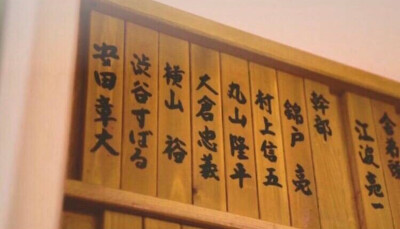 江波亮一
幹部
錦戸亮
村上信五
丸山隆平
大倉忠義
横山裕
渋谷すばる
安田章大